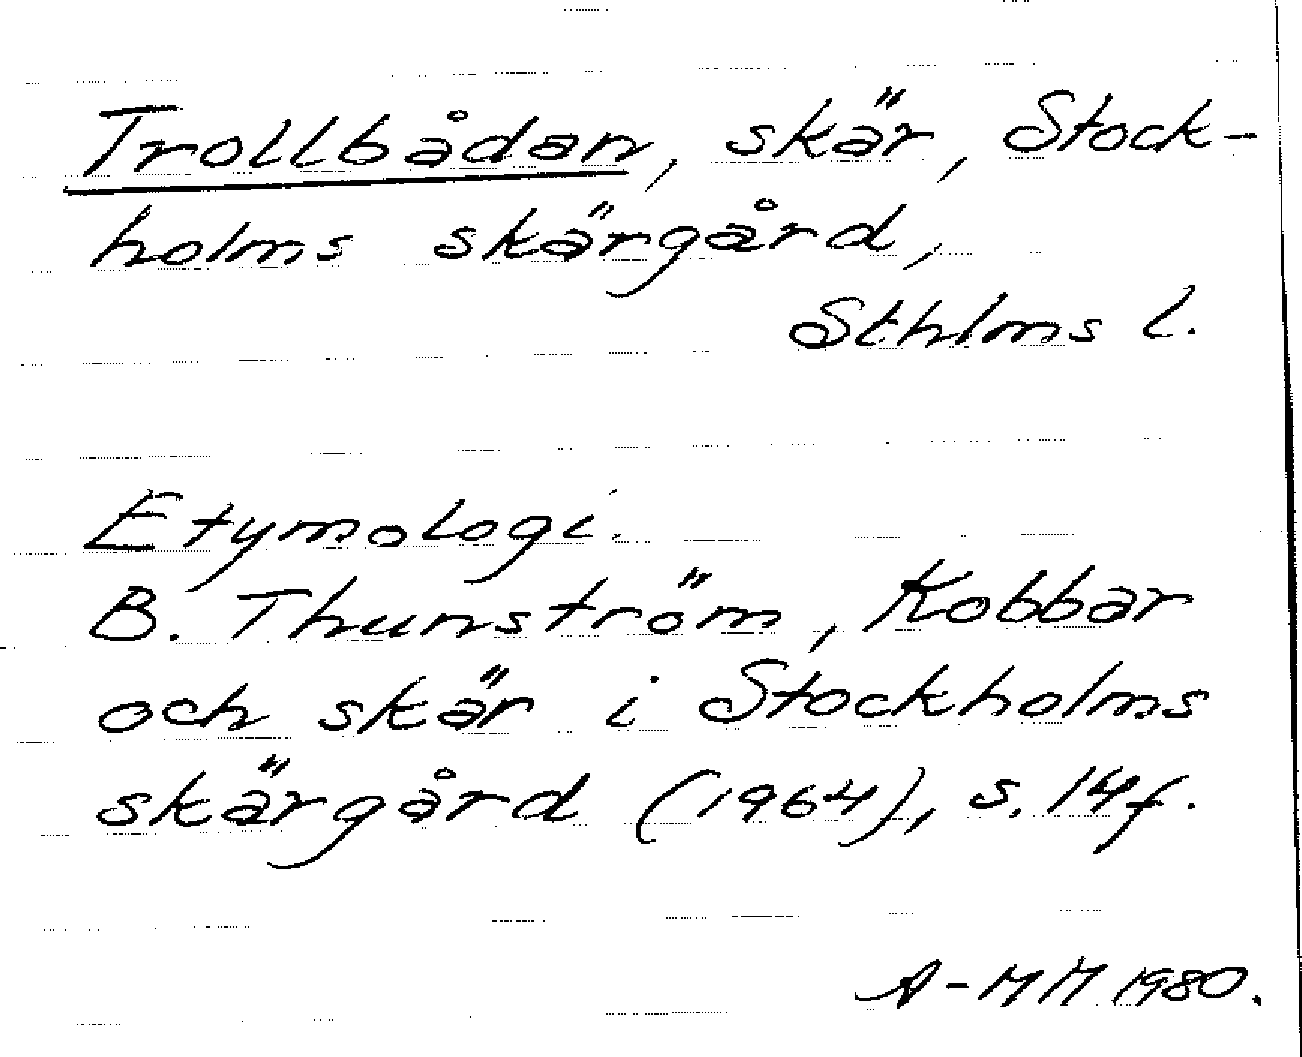 Trollbådan, skär, Stock-
holms skärgård,
Sthlms l.
Etymologi.
B. Thunström, Kobbar
och skär i Stockholms
skärgård (1964), s. 14f.
A-MM 1980.